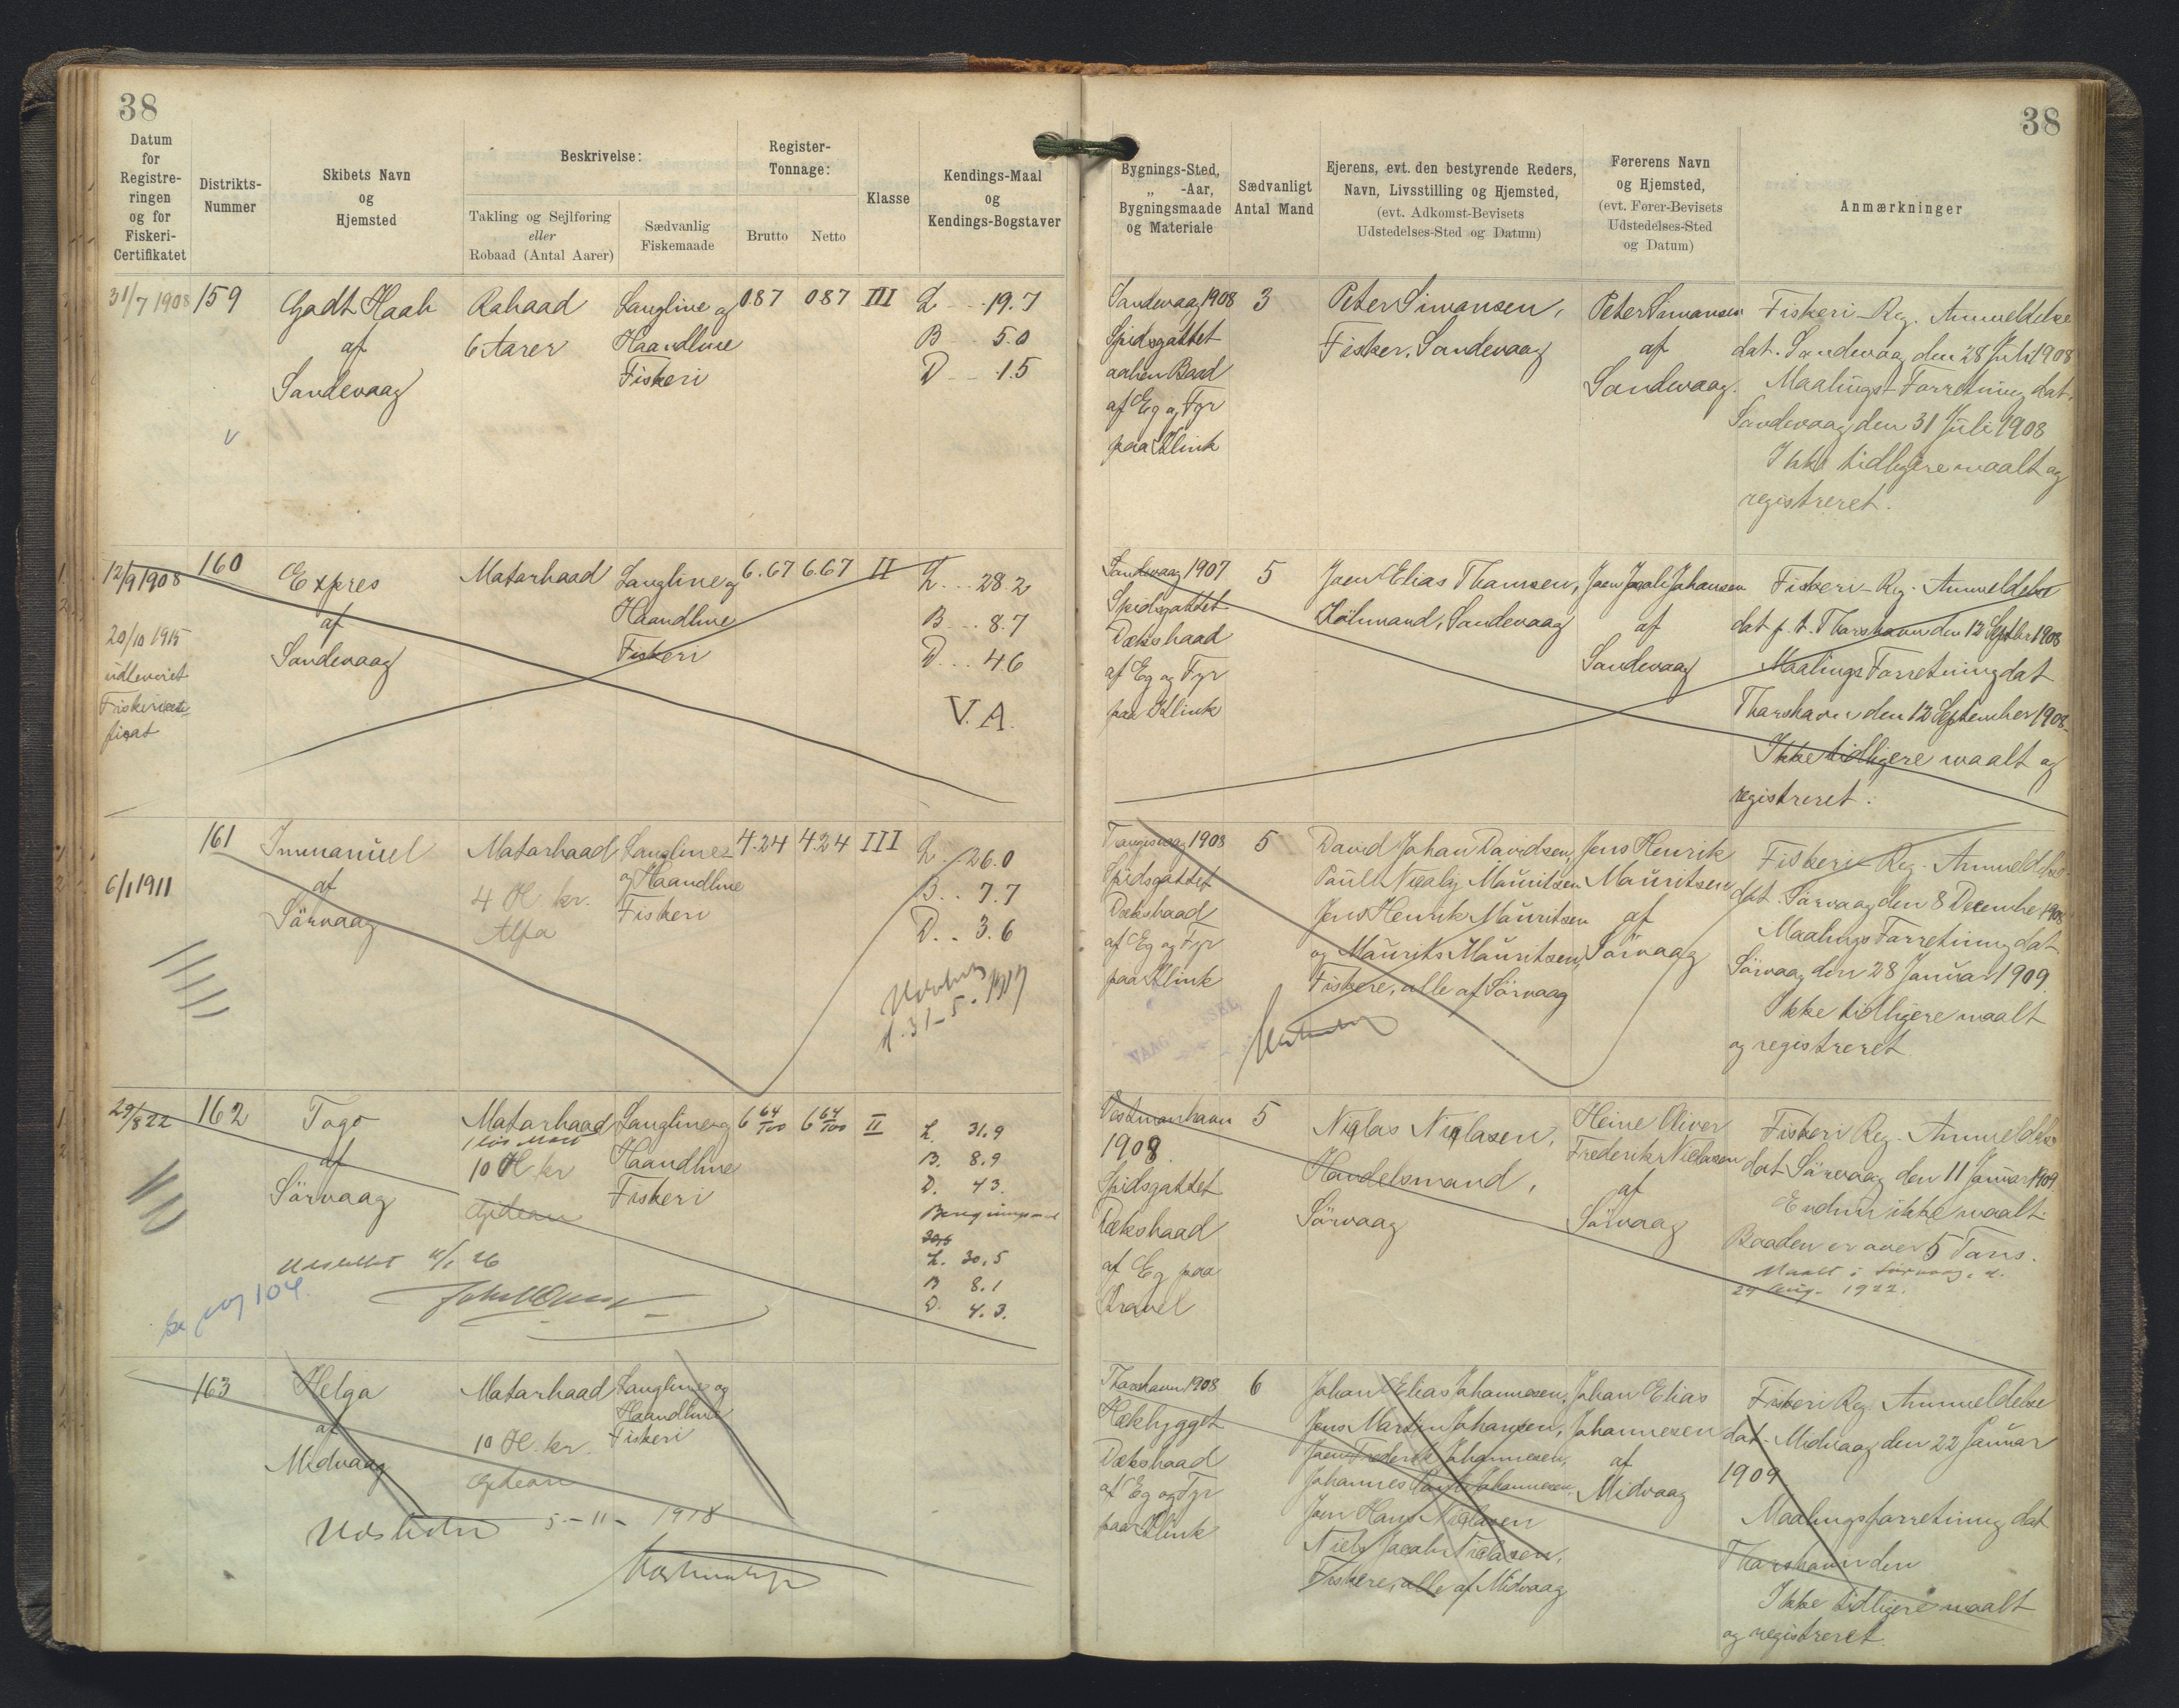 38
Datum
for
Registre-
ringen
og for
Fiskeri-
Certifikatet
Distrikts-
Nummer
Skibets Navn
og
Hjemsted
Beskrivelse:
Takling og Sejlføring
eller
Robaad (Antal Aarer)
Sædvanlig
Fiskemaade
Register-
Tonnage:
Brutto
Netto
Klasse
Kendings-Maal
og
Kendings-Bogstaver
31/7 1908
159
Godt Haab
af
Sandevaag
Robaad
6 Aarer
Langline og
Haandline
Fiskeri
0.87
0.87
III
L - - 19.7
B - - 5.0
D - - 1.5
12/9 1908
20/10 1915
udleveret
Fiskericerti-
ficat
160
Expres
af
Sandevaag
Motorbaad
Langline og
Haandline
Fiskeri
6.67
6.67
II
L . . . 28.2
B . . . 8.7
D . . . 4.6
V.A.
6/1 1911
161
Immanuel
af
Sörvaag
Motorbaad
4 H. kr.
Alfa
Langline
og Haandline
Fiskeri
4.24
4.24
III
L . . 26.0
B . . 7.7
D . . 3.6
29/8 22
162
Togo
af
Sörvaag
Motorbaad
10 H. kr
Gideon
Langline og
Haandline
Fiskeri
6 64/100
6 64/100
II
L. 31.9
B. 8.9
D. 4.3.
L. 30,5
B 8.1
D. 4.3.
Udslettet
se pag 104.
163
Helga
af
Midvaag
Motorbaad
10 H. kr.
Gideon
Langline og
Haandline
Fiskeri
5 - 11 - 1918
38
Bygnings-Sted,
„ -Aar,
Bygningsmaade
og Materiale
Sædvanligt
Antal Mand
Ejerens, evt. den bestyrende Reders,
Navn, Livsstilling og Hjemsted,
(evt. Adkomst-Bevisets
Udstedelses-Sted og Datum)
Førerens Navn
og Hjemsted,
(evt. Fører-Bevisets
Udstedelses-Sted
og Datum)
Anmærkninger
Sandevaag 1908
Spidsgattet
aaben Baad
af Eg og Fyr
paa Klink
3
Peter Simonsen,
Fisker, Sandevaag
Peter Simonsen
af
Sandevaag.
Fiskeri-Reg. Anmeldelse
dat. Sandevaag den 28 Juli 1908
Maalings-Forretning dat.
Sandevaag den 31 Juli 1908
Ikke tidligere maalt og
registreret.
Sandevaag 1907
Spidsgattet
Dæksbaad
af Eg og Fyr
paa Klink
5
Joen Elias Thomsen,
Köbmand, Sandevaag
Joen Jacob Johansen
af
Sandevaag
Fiskeri-Reg. Anmeldelse
dat p. t. Thorshavn den 12 Septbr 1908
Maalings Forretning dat
Thorshavn den 12 September 1908
Ikke tidligere maalt og
registreret.
1908
Spidsgattet
Dæksbaad
af Eg og Fyr
paa Klink
5
David Johan Davidsen,
Poul Nicolaj Mauritsen
Jens Henrik Mauritsen
og Maurits Mauritsen,
Fiskere, alle af Sörvaag
Jens Henrik
Mauritsen
af
Sörvaag
Fiskeri-Reg. Anmeldelse
dat. Sörvaag den 8 December 1908
Maalings Forretning dat.
Sörvaag den 28 Januar 1909.
Ikke tidligere maalt
og registreret
Vestmanhavn
1908.
Spidsgattet
Dæksbaad
af Eg paa
Kravel
5
Niclas Niclasen,
Handelsmand,
Sörvaag
Heine Oliver
Frederik Niclasen
af
Sörvaag
Fiskeri Reg. Anmeldelse
dat Sörvaag den 11 Januar 1909.
Endnu ikke maalt.
Baaden er over 5 Tons.
Maalt i Sörvaag, d.
29 Aug. 1922.
Thorshavn 1908
Hækbygget
Dæksbaad
af Eg og Fyr
paa Klink
6
Johan Elias Johannesen,
Jens Martin Johansen,
Joen Frederik Johannesen,
Johannes Jacob Johannesen,
Joen Hans Niclasen
Niels Jacob Niclasen,
Fiskere, alle af Midvaag
Johan Elias
Johannesen
af
Midvaag
Fiskeri Reg Anmeldelse
dat. Midvaag den 22 Januar
1909
Maalingsforretning dat
Thorshavn den
Ikke tidligere maalt
og registreret.